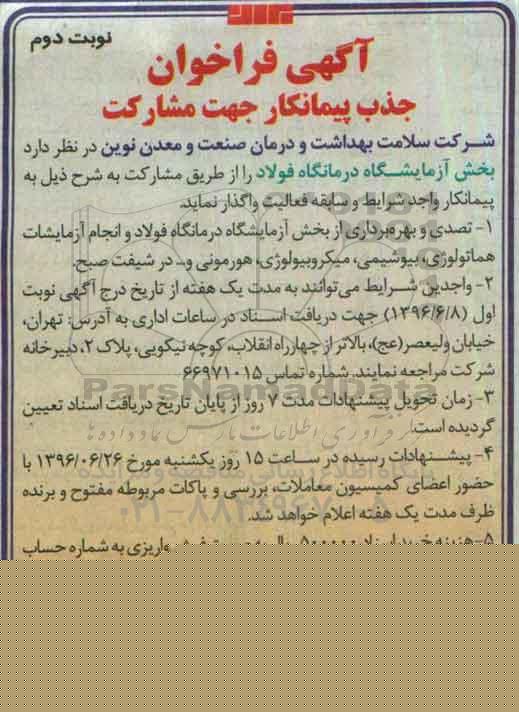 نوبت دوم
آگهی فراخوان
جذب پیمانکار جهت مشارکت
شرکت سلامت بهداشت و درمان صنعت و معدن نوین در نظر دارد
بخش آزمایشگاه درمانگاه فولاد را از طریق مشارکت به شرح ذیل به
پیمانکار واجد شرایط و سابقه فعالیت واگذار نماید.
۱- تصدی و بهره‌برداری از بخش آزمایشگاه درمانگاه فولاد و انجام آزمایشات
هماتولوژی، بیوشیمی، میکروبیولوژی، هورمونی و... در شیفت صبح.
۲- واجدین شرایط می‌توانند به مدت یک هفته از تاریخ درج آگهی نوبت
اول (۱۳۹۶/۶/۸) جهت دریافت اسناد در ساعات اداری به آدرس: تهران،
خیابان ولیعصر(عج)، بالاتر از چهارراه انقلاب، کوچه نیکویی، پلاک ۲، دبیرخانه
شرکت مراجعه نمایند. شماره تماس ۶۶۹۷۱۰۱۵
ParsNamadData
۳- زمان تحویل پیشنهادات مدت ۷ روز از پایان تاریخ دریافت اسناد تعیین
گردیده است.
۴- پیشنهادات رسیده در ساعت ۱۵ روز یکشنبه مورخ ۱۳۹۶/۰۶/۲۶ با
حضور اعضای کمیسیون معاملات، بررسی و پاکات مربوطه مفتوح و برنده
ظرف مدت یک هفته اعلام خواهد شد.
۵- هزینه خرید اسناد ۵۰۰۰۰۰ ریال به واریزی به شماره حساب